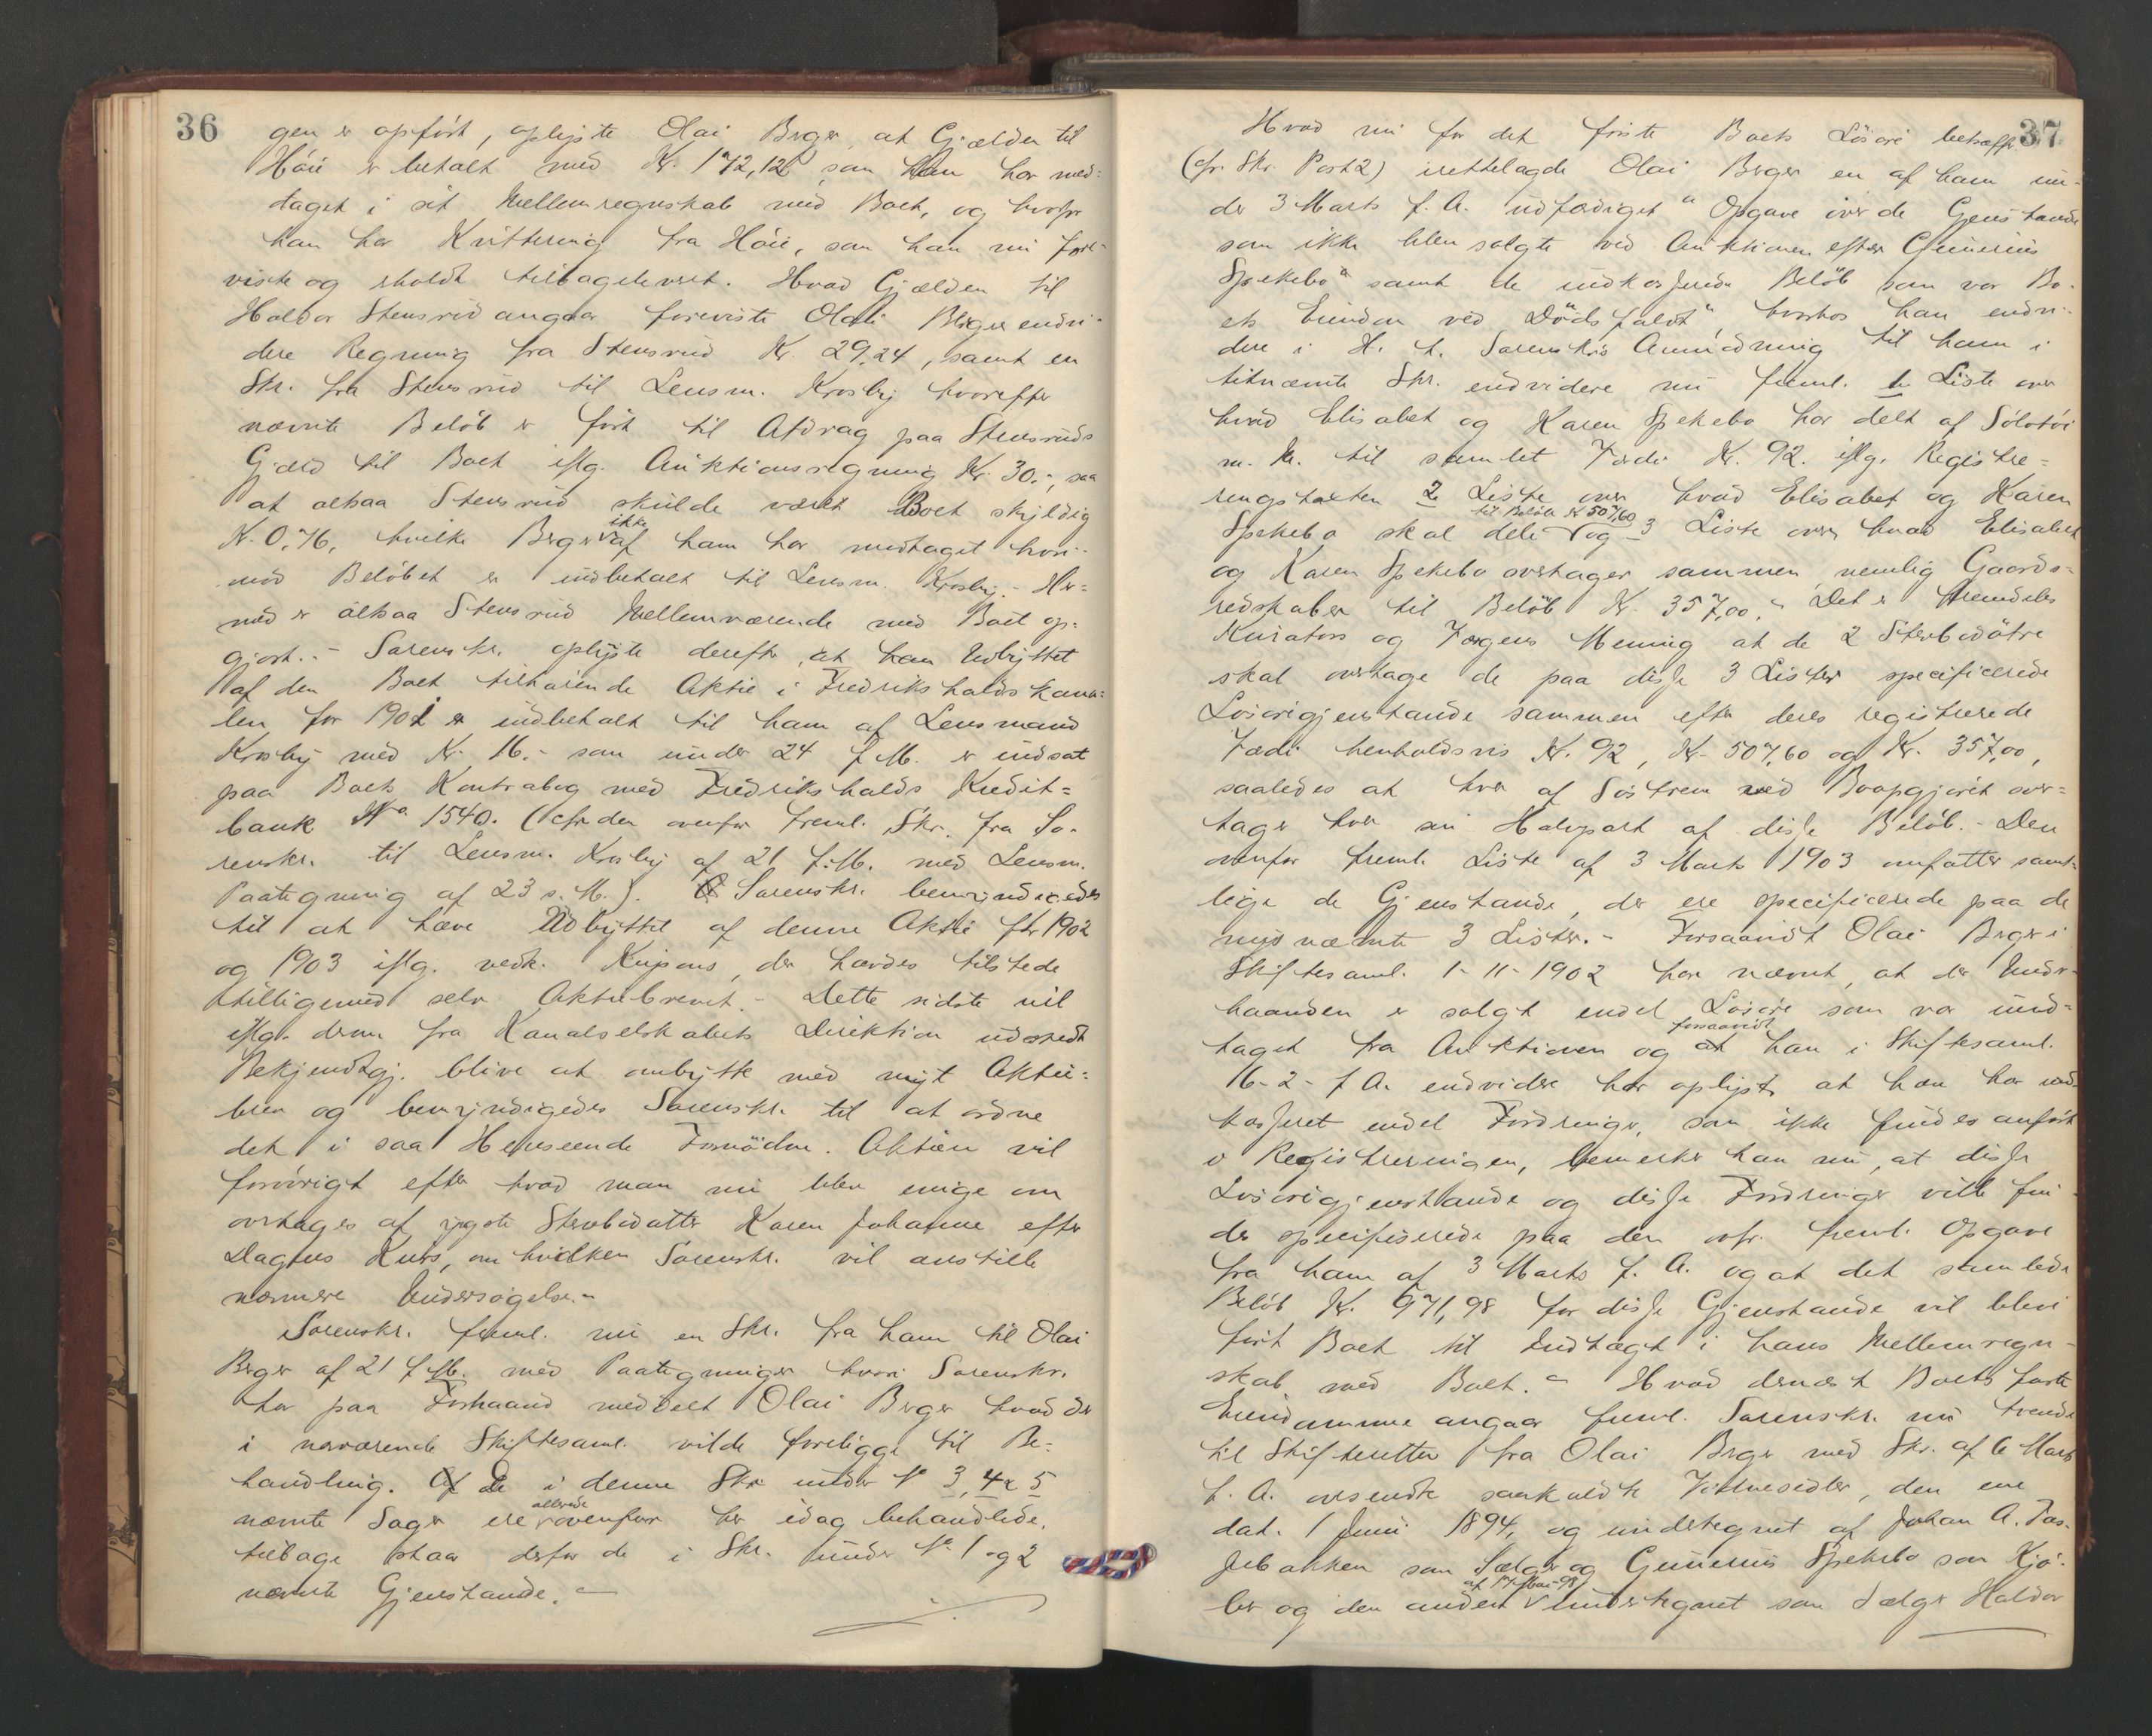 36
gen er opført, oplyste Olai Berger, at Gjælden til
Höie er betalt med Kr. 172,12 som han har med-
taget i sit Mellemregnskab med Boet, og hvorfor
han har Kvittering fra Höie, som han nu fore-
viste og erholdt tilbageleveret. Hvad Gjælden til
Haldor Stensrud angaar foreviste Olai Berger endvi-
dere Regning fra Stensrud Kr. 29,24, samt en
Skr. fra Stensrud til Lensm. Krosby hvorefter
nævnte Beløb er ført til Afdrag paa Stensruds
Gjæld til Boet iflg. Auktionsregning Kr. 30.-, saa
at altsaa Stensrud skulde været Boet skyldig
Kr. 0,76, hvilke Berger ikke af ham har modtaget hvori-
mod Beløbet er indbetalt til Lensm. Krosby.- Her-
med er altsaa Stensrud Mellemværende med Boet op-
gjort.- Sorenskr. oplyste derefter, at han Udbyttet
af den Boet tilhørende Aktie i Fredrikshaldskana-
len for 1901 er indbetalt til ham af Lensmand
Krosby med Kr. 16.- som under 24 f.M. er indsat
paa Boets Kontrabog med Fredrikshalds Kredit-
bank No 1540. (cfr. den ovenfor freml. Skr. fra So-
renskr. til Lensm. Krosby af 21 f.M. med Lensm.
Paategning af 23 s.M.). Sorenskr. bemyndigedes
til at hæve Udbyttet af denne Aktie for 1902
og 1903 iflg. vedk. Kupons, der havdes tilstede
tilligemed selve Aktiebrevet.- Dette sidste vil
iflg. denne fra Kanalselskabets Direktion udstedt
Bekjendtgj. blive at ombytte med nyt Aktie-
brev og bemyndigedes Sorenskr. til at ordne
det i saa Henseende Fornødne. Aktien vil
forøvrigt efter hvad man nu blev enige om
overtages af yngste Sterbodatter Karen Johanne efter
Dagens Kurs, om hvilken Sorenskr. vil anstille
nærmere Undersøgelse.-
Sorenskr. freml. nu en Skr. fra ham til Olai
Berger af 21 f.M. med Paategninger hvori Sorenskr.
har paa Forhaand meddelt Olai Berger hvad der
i nærværende Skiftesaml. vilde foreligge til Be-
handling. Af de i denne Skr. under No 3, 4 & 5
nævnte Sager ere allerede ovenfor her idag behandlede.
tilbage staar derfor de i Skr. under No. 1 og 2
nævnte Gjenstande.-
37
Hvad nu for det første Boets Løsøre betræffer
(cfr. Skr. Post 2) irettelagde Olai Berger en af ham un-
der 3 Marts f. A. udfærdiget "Opgave over de Gjenstande
som ikke blev solgte ved Auktionen efter Gunerius
Spekebo" samt de indkasserede Beløb som var Bo-
ets Eiendom ved Dødsfaldet", hvorhos han endvi-
dere i H. t. Sorenskrs Anmodning til ham i
titnævnte Skr. endvidere nu freml. 1 Liste over
hvad Elisabet og Karen Spekebo har delt af Sølvtøi
m. M. til samlet Værdi Kr. 92. iflg. Registre-
ringstaxten 2 Liste over hvad Elisabet og Karen
Spekebo skal dele til Beløb Kr 507,60 og 3 Liste over hvad Elisabet
og Karen Spekebo overtager sammen, nemlig Gaards-
redskaber til Beløb Kr. 357,00.- Det er fremdeles
Kurators og Værgens Mening at de 2 Sterbodøtre
skal overtage de paa disse 3 Lister specificerede
Løsøregjenstande sammen efter deres registrerede
Værdi henholdsvis Kr. 92, Kr. 507,60 og Kr. 357,00,
saaledes at hver af Søstrene ved Boopgjøret over-
tager hver sin Halvpart af disse Beløb.- Den
ovenfor freml. Liste af 3 Marts 1903 omfatter samt-
lige de Gjenstande, der ere specificerede paa de
nysnævnte 3 Lister.- Forsaavidt Olai Berger i
Skiftesaml. 1-11-1902 har nævnt, at der Under-
haanden er solgt endel Løsøre som var und-
taget fra Auktionen og forsaavidt han i Skiftesaml.
16-2- f. A. endvidere har oplyst, at han har ind-
kasseret endel Fordringer, som ikke findes anført
i Registreringen, bemerker han nu, at disse
Løsøregjenstande og disse Fordringer ville fin-
des specificerede paa den ovfr. freml. Opgave
fra ham af 3 Marts f. A. og at det samlede
Beløb Kr. 971,98 for disse Gjenstande vil blive
ført Boet til Indtægt i hans Mellemregn-
skab med Boet.- Hvad dernæst Boets faste
Eiendomme angaar freml. Sorenskr. nu tvende
til Skifteretten fra Olai Berger med Skr. af 6 Marts
f. A. oversendte saakaldte Vitnesedler, den ene
dat. 1 Juni 1894, og undertegnet af Johan A. Tos-
sebakken som Sælger og Gunerius Spekebo som Kjø-
ber og den anden af 17 Mai 98 undertegnet som Sælger Haldor